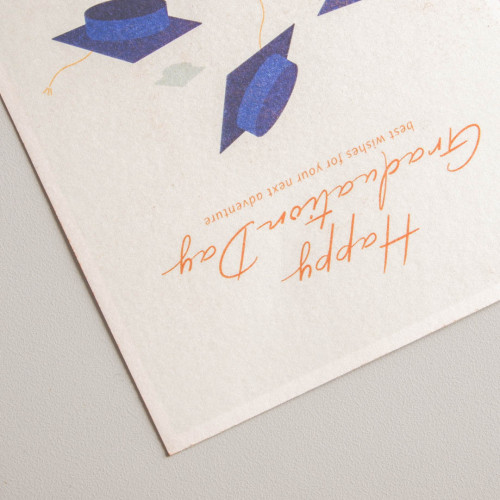 Happy
Graduation Day
best wishes for your next adventure